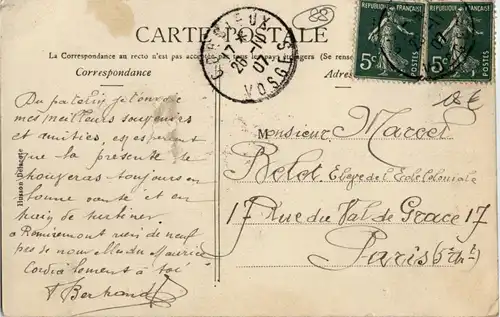 CARTE POSTALE
88
La Correspondance au recto n'est pas acceptée par tous les pays étrangers (Se rense
Correspondance
Adres
VOSGES
26-1
07
REPUBLIQUE FRANÇAISE
5c POSTES
REPUBLIQUE FRANÇAISE
5c POSTES
Du patelin je t'envoie
mes meilleurs souvenirs
et amitiés, espérant
que la présente te
trouveras toujours en
bonne santé et en
train de turbiner
à Remiremont rien de neuf
pas de nouvelles du Maurice
Cordialement à toi
Bertrand
Husson Delacote
Monsieur Marcel
Belot Eleve de l'Ecole Coloniale
17 Rue du Val de Grace 17
Paris (5e Art)